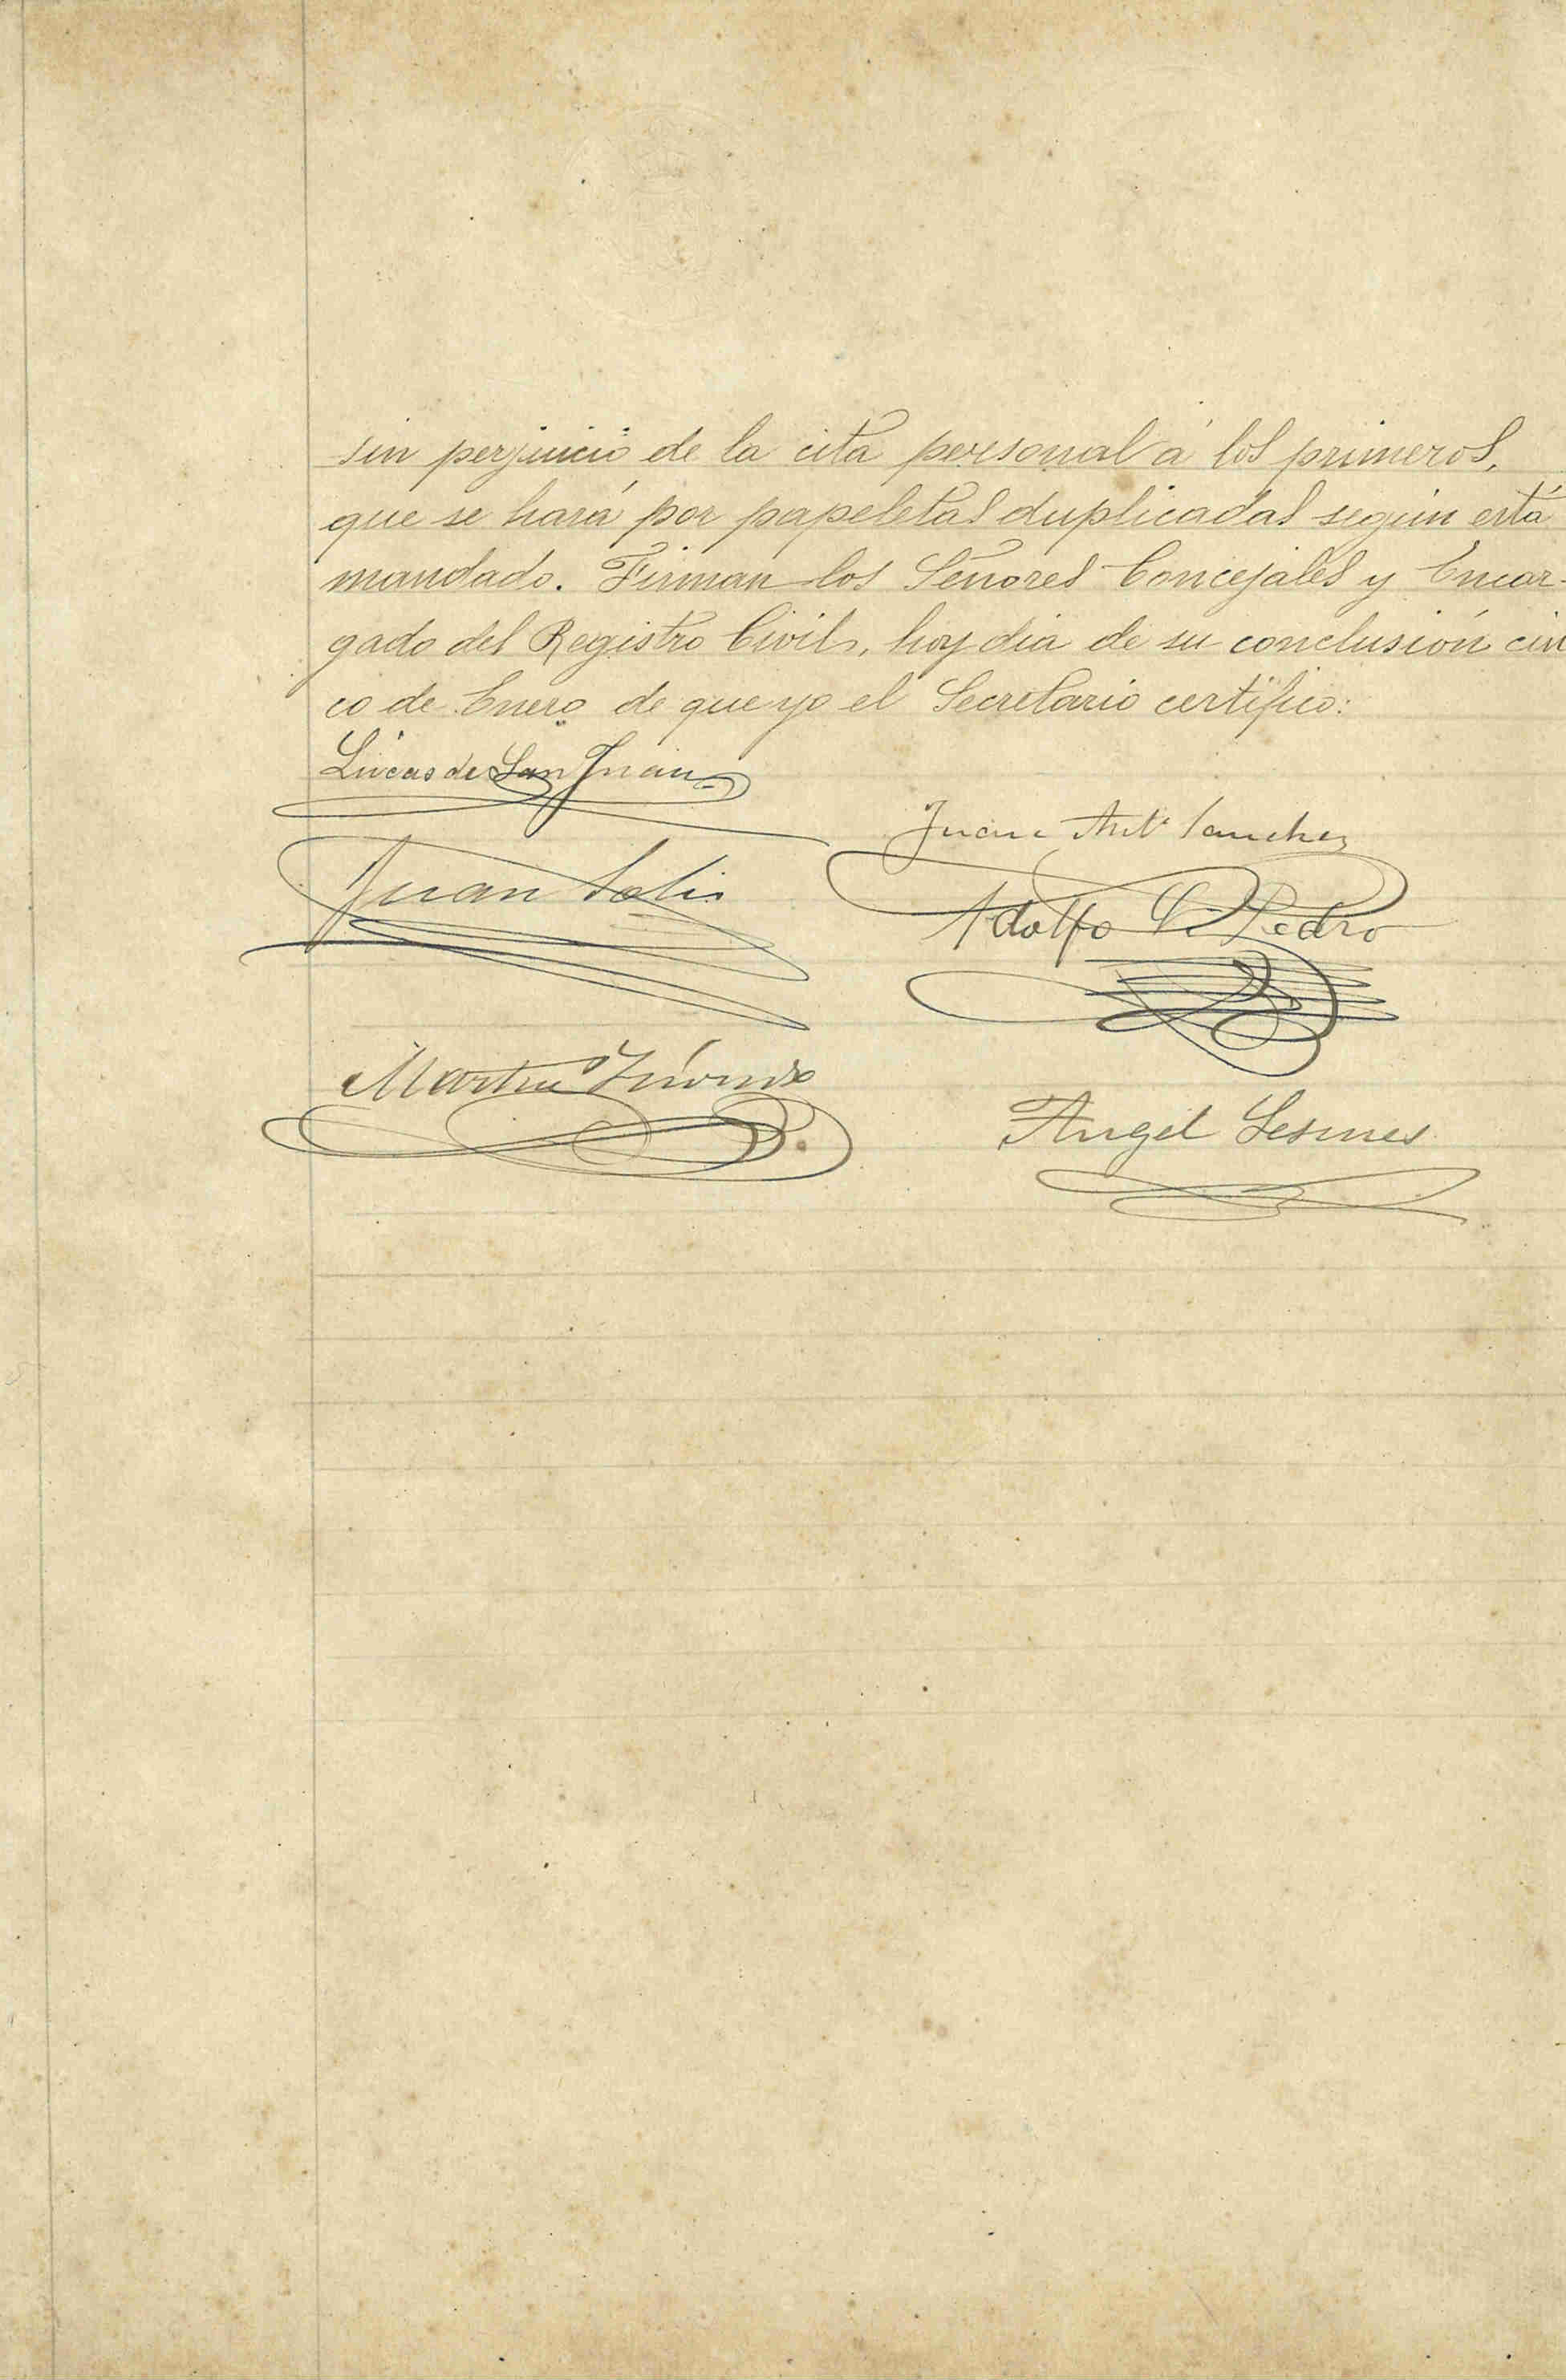 sin perjuicio de la cita personal á los primeros,
que se hará por papeletas duplicadas según está
mandado. Firman los Señores Concejales y Encar-
gado del Registro Civil, hoy día de su conclusión cin
co de Enero de que yo el Secretario certifico:
Lucas de San Juan
Juan Ant.º Sanchez
Juan Solis
Adolfo Pedro
Martin
Angel Lesmes